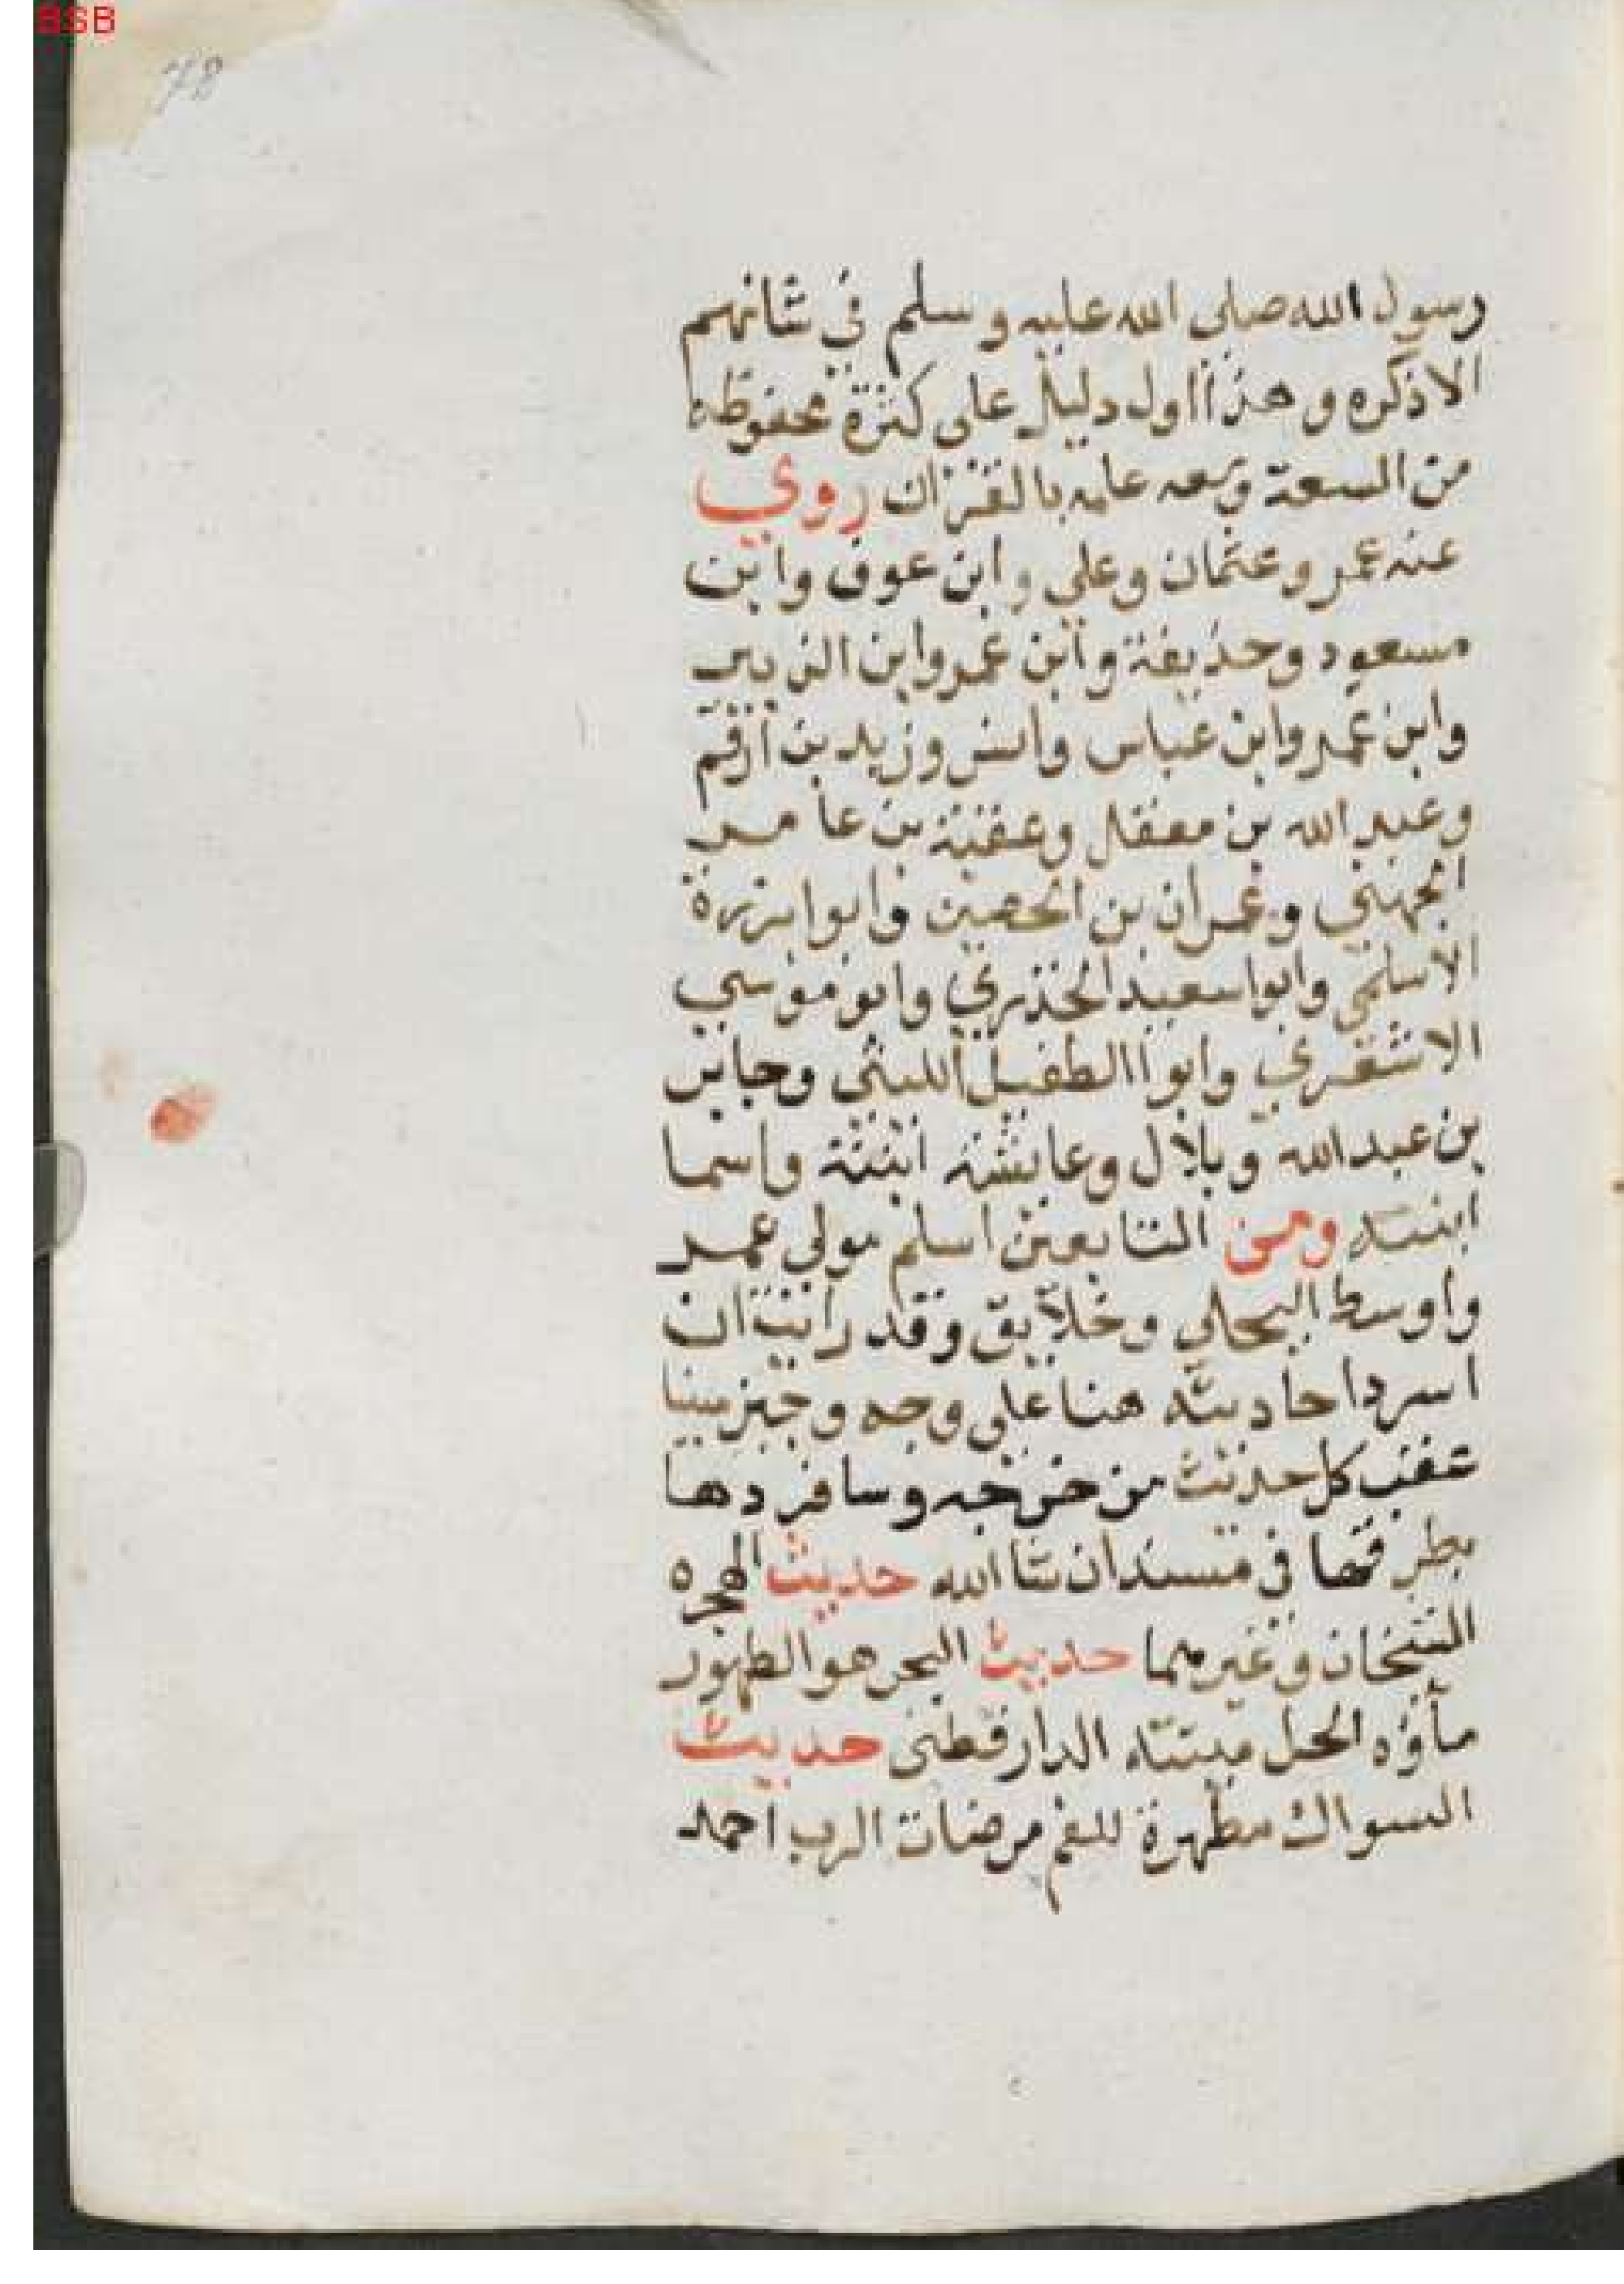 BSB
78
رسول الله صلى الله عليه وسلم في شانهم
الا ذكره وهذا اول دليل على كثرة محفوظه
من السعة وسعه علمه بالقران روي
عنه عمر وعثمان وعلي وابن عوف وابن
مسعود وحذيفة وابن عمر وابن الزبير
وابن عمر وابن عباس وانس وزيد بن ارقم
وعبد الله بن مغفل وعقبة بن عامر
الجهني وعمران بن الحصين وابوا برزة
الاسلمي وابوا سعيد الخذري وابو موسي
الاشعري وابوا الطفيل الليثي وجابر
بن عبد الله وبلال وعايشة ابنته واسما
ابنته ومن التابعين اسلم مولي عمر
واوسط البجلي وخلايق وقد رايت ان
اسرد احاديثه هنا على وجه وجيز مبينا
عقب كل حديث من خرجه وسافردها
بطرقها في مسند ان شا الله حديث الهجره
الشيخان وغيرهما حديث البحر هو الطهور
مآؤه الحل ميتته الدارقطني حديث
السواك مطهرة للفم مرضات الرب احمد